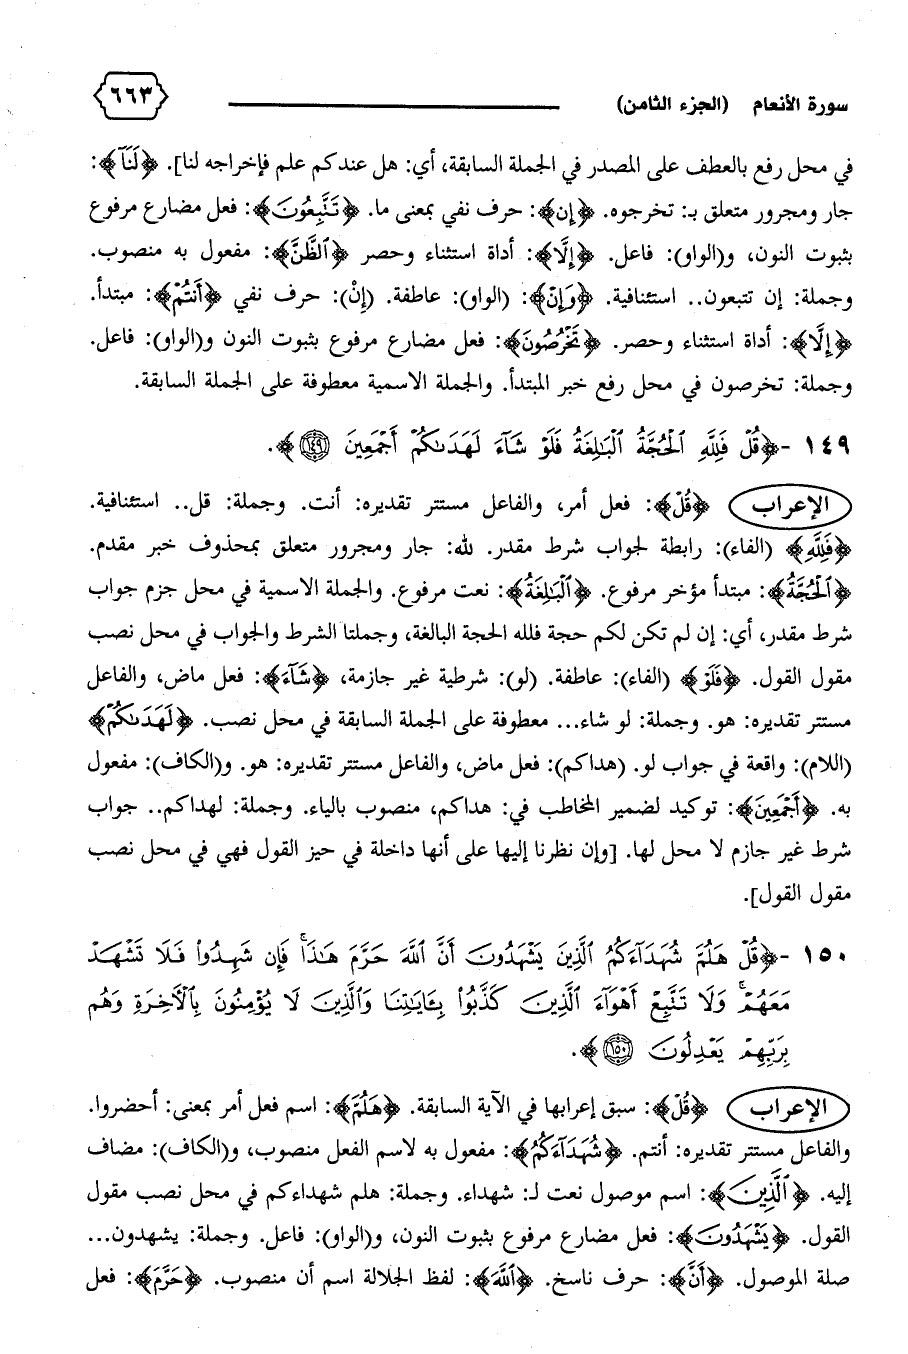 سورة الأنعام (الجزء الثامن) ٦٦٣
في محل رفع بالعطف على المصدر في الجملة السابقة، أي: هل عندكم علم فإخراجه لنا]. ﴿لَنَآ﴾:
جار ومجرور متعلق بـ: تخرجوه. ﴿إِن﴾: حرف نفي بمعنى ما. ﴿تَتَّبِعُونَ﴾: فعل مضارع مرفوع
بثبوت النون، و(الواو): فاعل. ﴿إِلَّا﴾: أداة استثناء وحصر ﴿ٱلظَّنَّ﴾: مفعول به منصوب.
وجملة: إن تتبعون.. استئنافية. ﴿وَإِنْ﴾: (الواو): عاطفة. (إِنْ): حرف نفي ﴿أَنتُمْ﴾: مبتدأ.
﴿إِلَّا﴾: أداة استثناء وحصر. ﴿تَخْرُصُونَ﴾: فعل مضارع مرفوع بثبوت النون و(الواو): فاعل.
وجملة: تخرصون في محل رفع خبر المبتدأ. والجملة الاسمية معطوفة على الجملة السابقة.
١٤٩ - ﴿قُلْ فَلِلَّهِ ٱلْحُجَّةُ ٱلْبَٰلِغَةُ فَلَوْ شَآءَ لَهَدَىٰكُمْ أَجْمَعِينَ ١٤٩﴾.
الإعراب ﴿قُلْ﴾: فعل أمر، والفاعل مستتر تقديره: أنت. وجملة: قل.. استئنافية.
﴿فَلِلَّهِ﴾ (الفاء): رابطة لجواب شرط مقدر. لله: جار ومجرور متعلق بمحذوف خبر مقدم.
﴿ٱلْحُجَّةُ﴾: مبتدأ مؤخر مرفوع. ﴿ٱلْبَٰلِغَةُ﴾: نعت مرفوع. والجملة الاسمية في محل جزم جواب
شرط مقدر، أي: إن لم تكن لكم حجة فلله الحجة البالغة، وجملتا الشرط والجواب في محل نصب
مقول القول. ﴿فَلَوْ﴾ (الفاء): عاطفة. (لو): شرطية غير جازمة، ﴿شَآءَ﴾: فعل ماض، والفاعل
مستتر تقديره: هو. وجملة: لو شاء... معطوفة على الجملة السابقة في محل نصب. ﴿لَهَدَىٰكُمْ﴾
(اللام): واقعة في جواب لو. (هداكم): فعل ماض، والفاعل مستتر تقديره: هو. و(الكاف): مفعول
به. ﴿أَجْمَعِينَ﴾: توكيد لضمير المخاطب في: هداكم، منصوب بالياء. وجملة: لهداكم.. جواب
شرط غير جازم لا محل لها. [وإن نظرنا إليها على أنها داخلة في حيز القول فهي في محل نصب
مقول القول].
١٥٠ - ﴿قُلْ هَلُمَّ شُهَدَآءَكُمُ ٱلَّذِينَ يَشْهَدُونَ أَنَّ ٱللَّهَ حَرَّمَ هَٰذَا ۖ فَإِن شَهِدُوا۟ فَلَا تَشْهَدْ
مَعَهُمْ ۚ وَلَا تَتَّبِعْ أَهْوَآءَ ٱلَّذِينَ كَذَّبُوا۟ بِـَٔايَٰتِنَا وَٱلَّذِينَ لَا يُؤْمِنُونَ بِٱلْـَٔاخِرَةِ وَهُم
بِرَبِّهِمْ يَعْدِلُونَ ١٥٠﴾.
الإعراب ﴿قُلْ﴾: سبق إعرابها في الآية السابقة. ﴿هَلُمَّ﴾: اسم فعل أمر بمعنى: أحضروا.
والفاعل مستتر تقديره: أنتم. ﴿شُهَدَآءَكُمُ﴾: مفعول به لاسم الفعل منصوب، و(الكاف): مضاف
إليه. ﴿ٱلَّذِينَ﴾: اسم موصول نعت لـ: شهداء. وجملة: هلم شهداءكم في محل نصب مقول
القول. ﴿يَشْهَدُونَ﴾: فعل مضارع مرفوع بثبوت النون، و(الواو): فاعل. وجملة: يشهدون...
صلة الموصول. ﴿أَنَّ﴾: حرف ناسخ. ﴿ٱللَّهَ﴾: لفظ الجلالة اسم أن منصوب. ﴿حَرَّمَ﴾: فعل